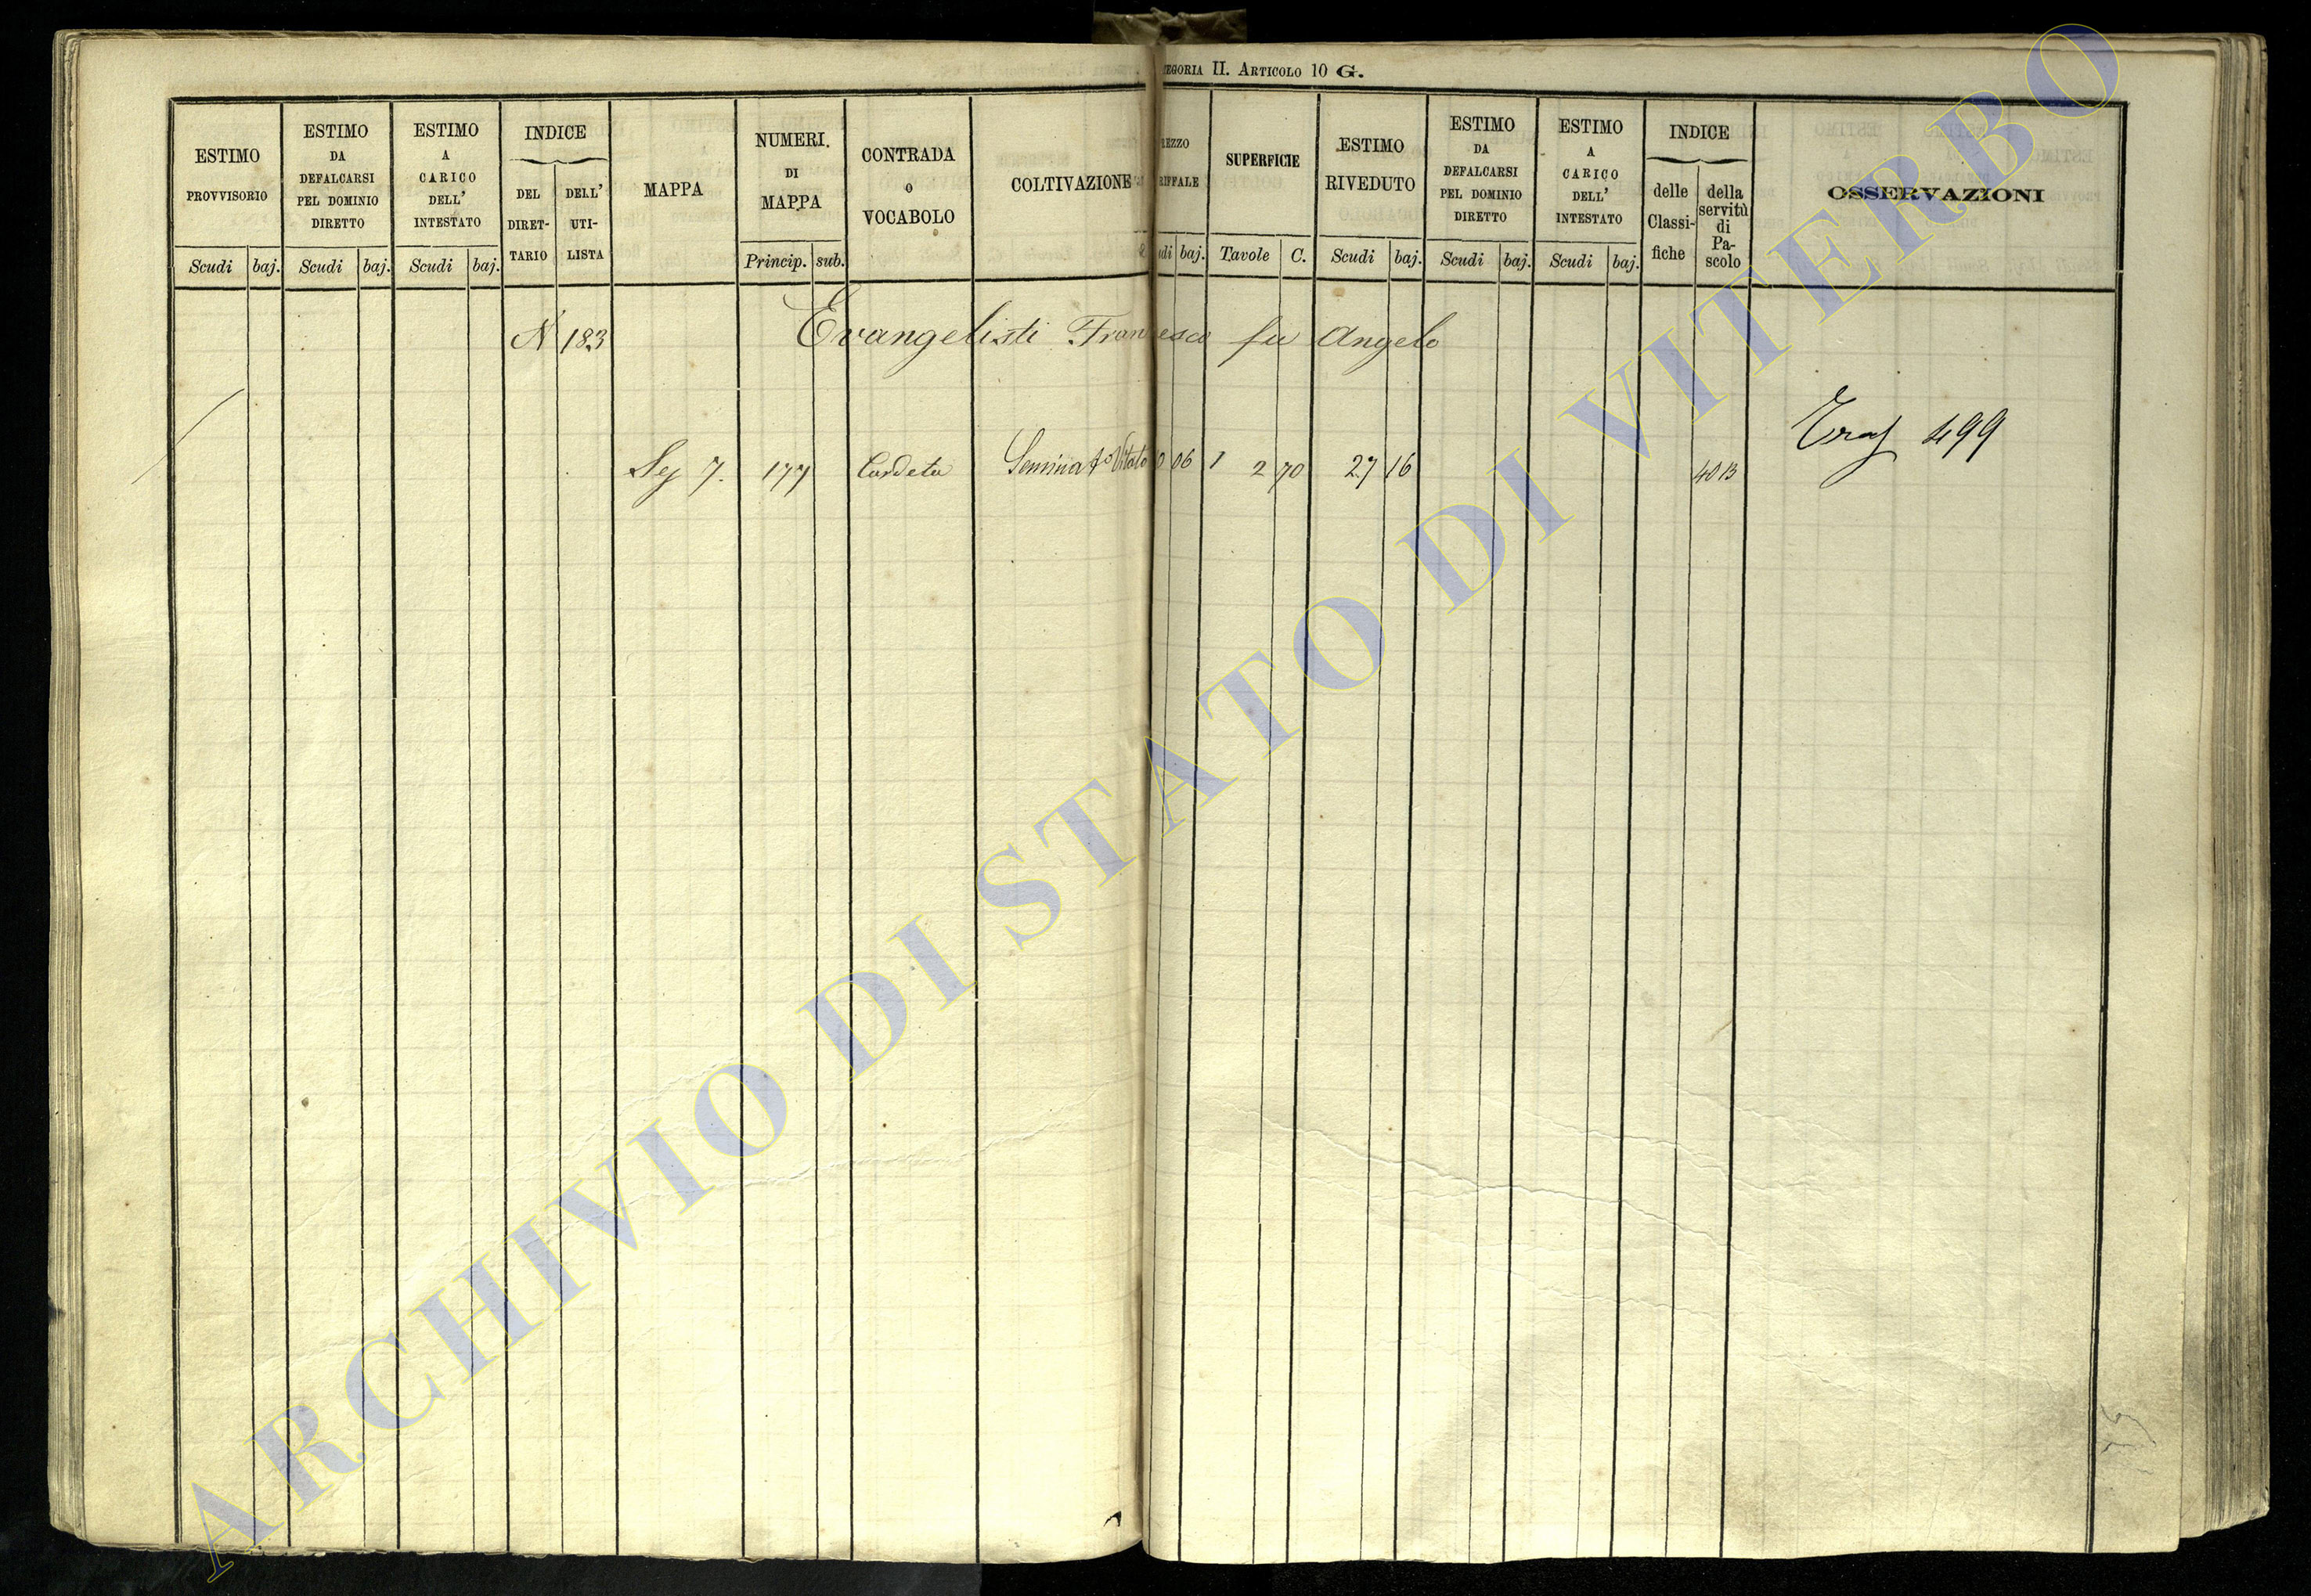 EGORIA II. ARTICOLO 10 G.
ESTIMO PROVVISORIO
ESTIMO DA DEFALCARSI PEL DOMINIO DIRETTO
ESTIMO A CARICO DELL' INTESTATO
INDICE
DEL DIRET-TARIO
DELL' UTI-LISTA
MAPPA
NUMERI. DI MAPPA
CONTRADA O VOCABOLO
COLTIVAZIONE
REZZO
RIFFALE
SUPERFICIE
ESTIMO RIVEDUTO
ESTIMO DA DEFALCARSI PEL DOMINIO DIRETTO
ESTIMO A CARICO DELL' INTESTATO
INDICE
delle Classi-fiche
della servitù di Pa-scolo
OSSERVAZIONI
Scudi baj. Scudi baj. Scudi baj. Princip. sub. di baj. Tavole C. Scudi baj. Scudi baj. Scudi baj.
N 183 Evangelisti Francesco fu Angelo
Traf 499
Sez 7. 177 Cardeta Seminat° Vitato 0 06 1 2 70 27 16 40 13
ARCHIVIO DI STATO DI VITERBO